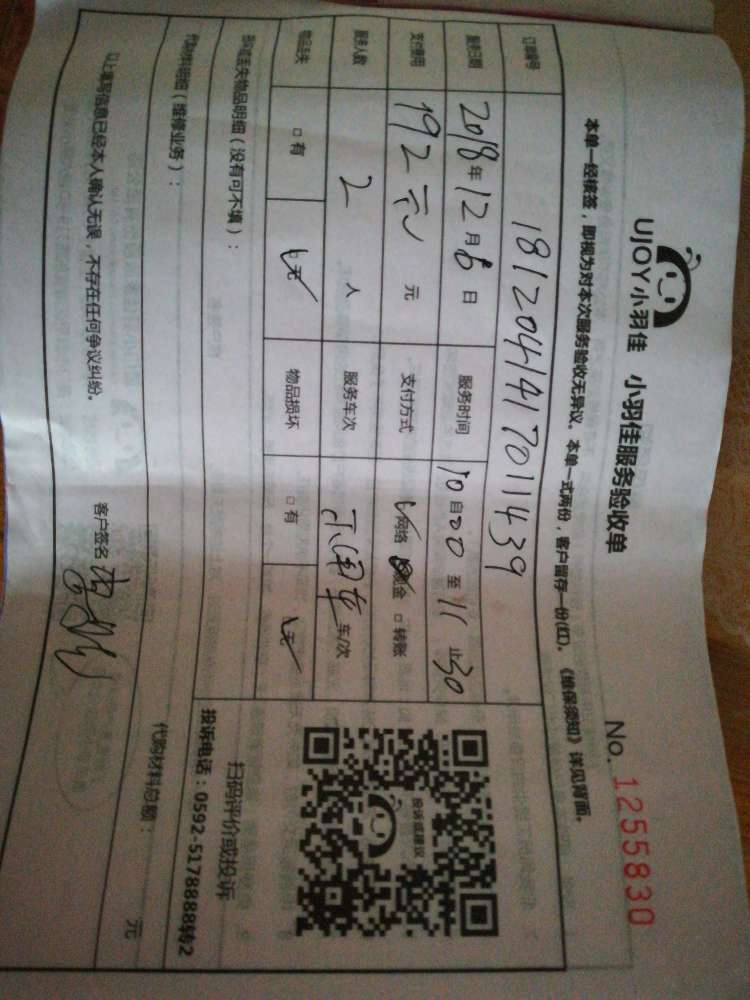 UJOY小羽佳 小羽佳服务验收单
No. 1255830
本单一经核签，即视为对本次服务验收无异议。本单一式两份，客户留存一份(红)。《维保须知》详见背面。
订单编号 181204141701439
服务日期 2018年12月6日 服务时间 10自20至11止30
支付费用 192元 元 支付方式 网络 现金 □转账
服务人数 2人 服务车次 车/次
物品丢失 □有 无 物品损坏 □有 无
丢失物品明细（没有可不填）：
代购材料明细（维修业务）：
代购材料总额： 元
投诉或建议
扫码评价或投诉
投诉电话：0592-5178888转2
以上填写信息已经本人确认无误，不存在任何争议纠纷。
客户签名